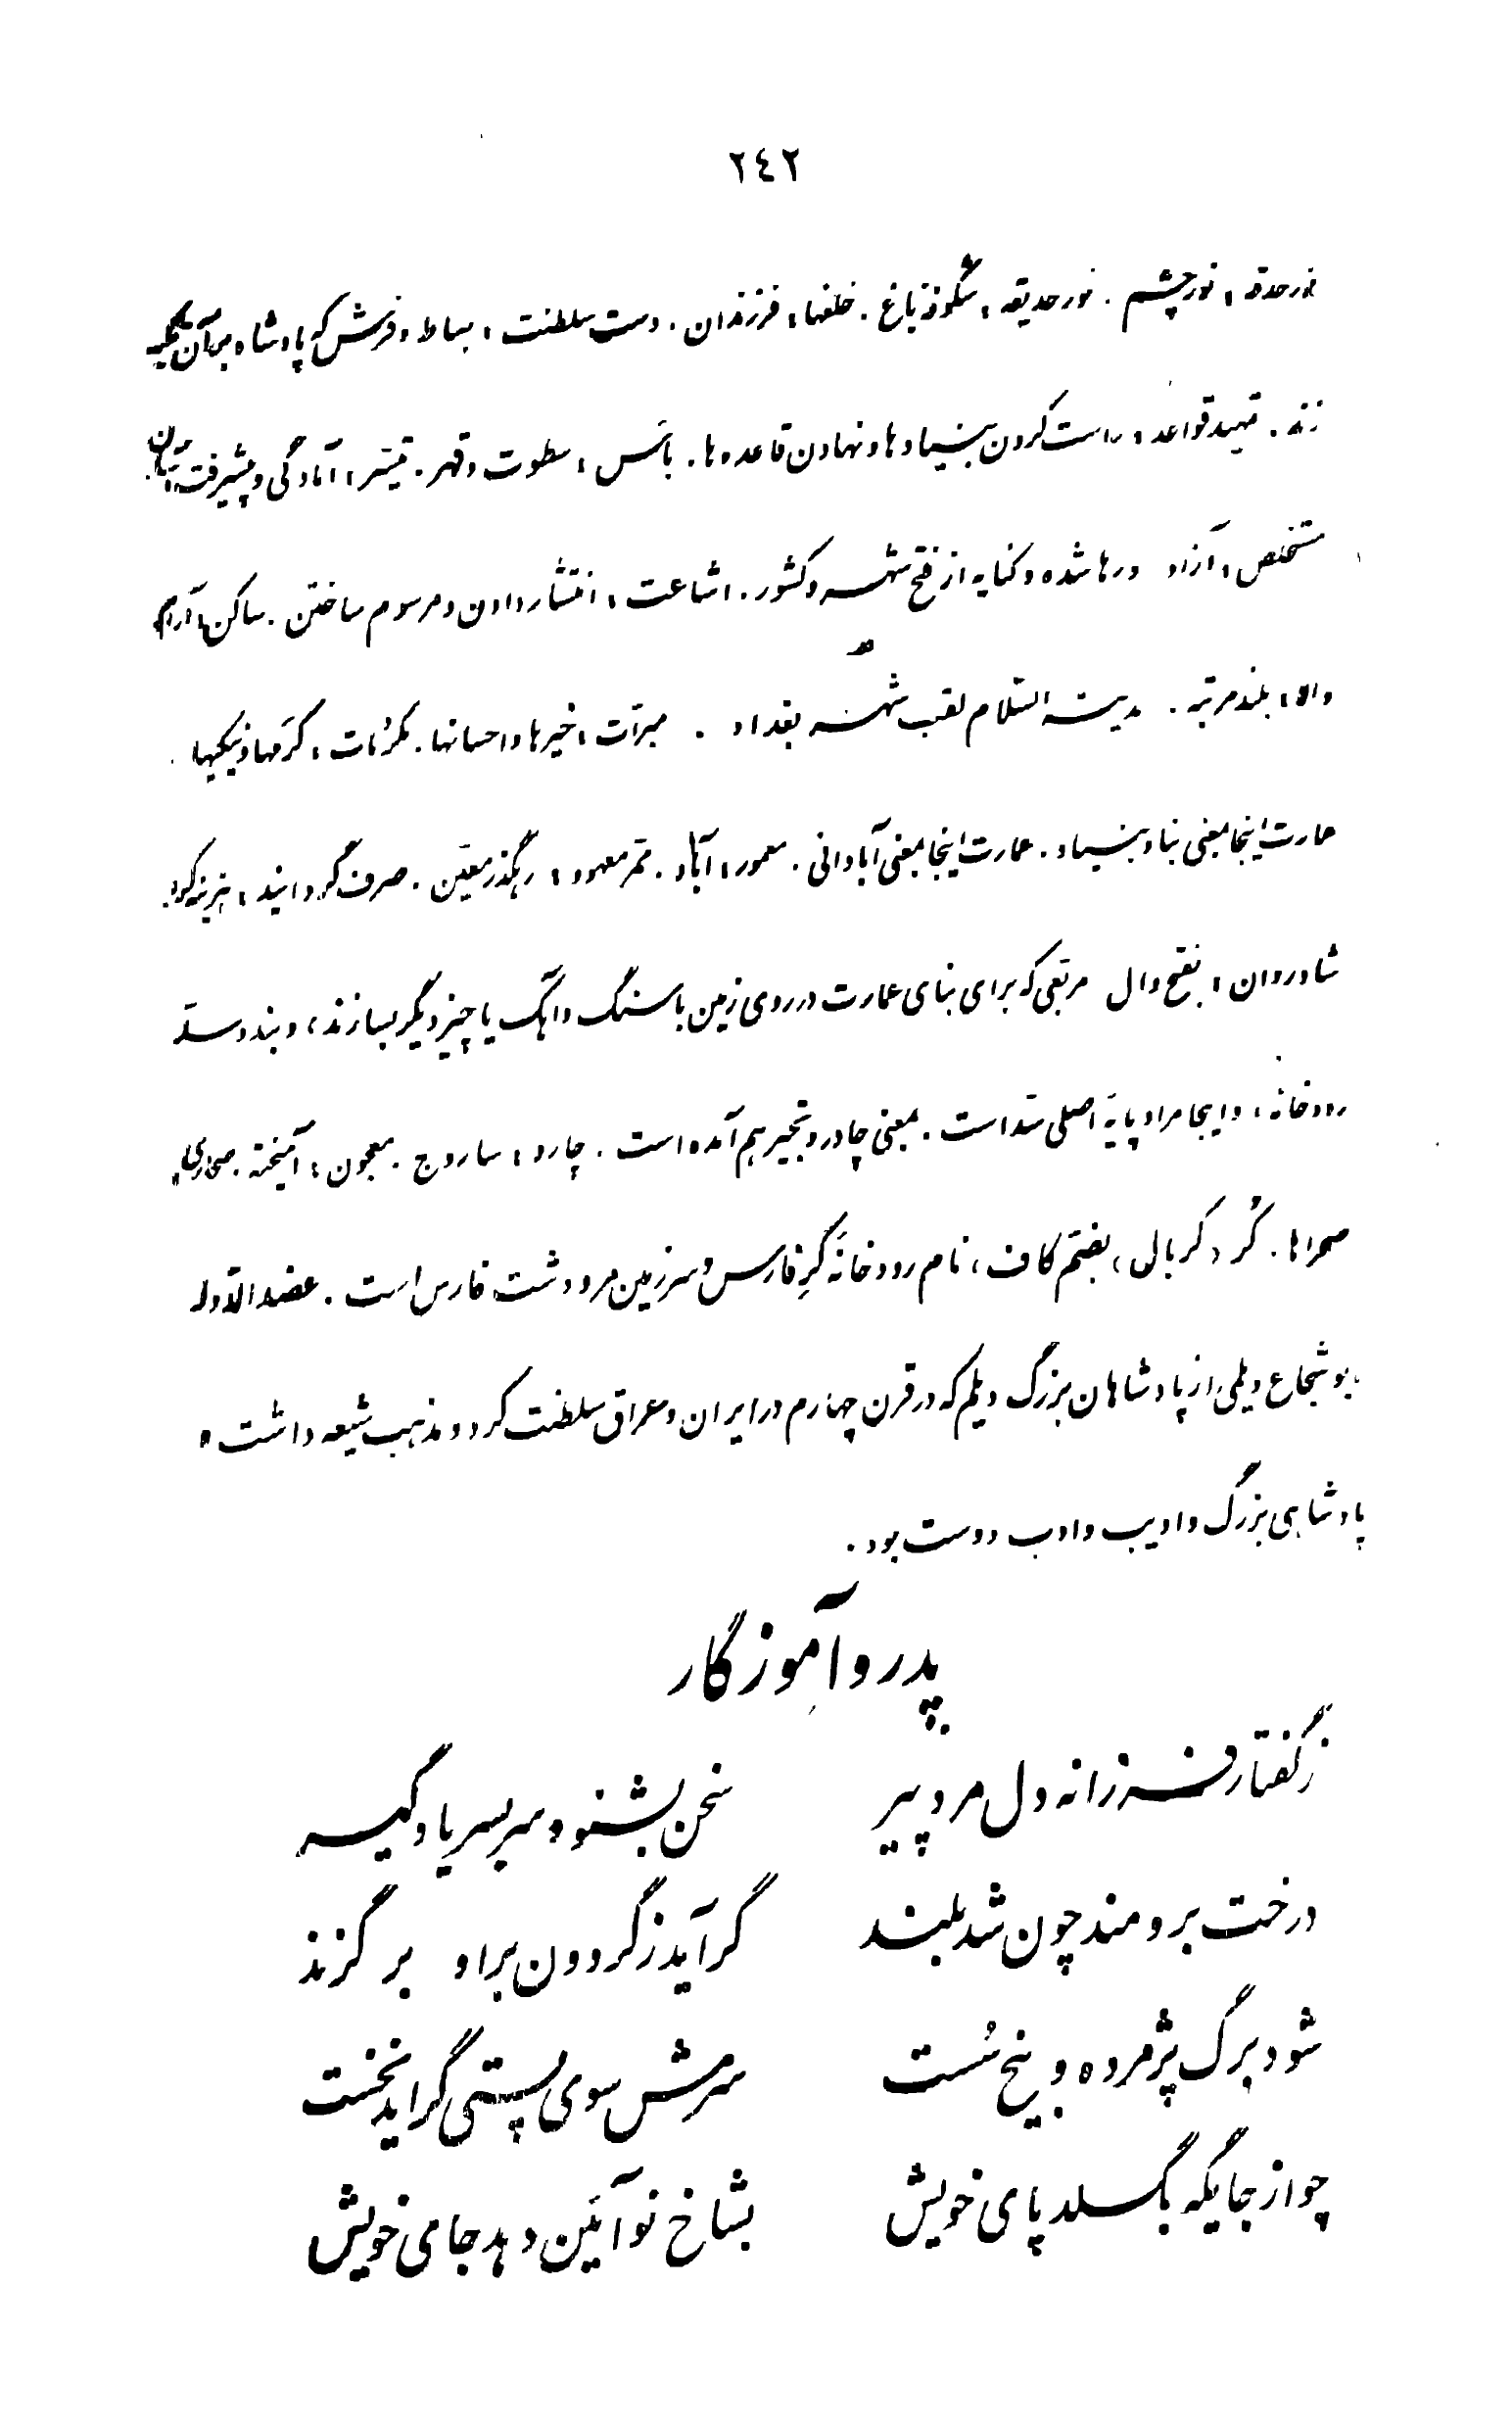 ٢٤٢
نور حدقه، نور چشم. نور حدیقه، شکوفهٔ باغ. خلفها، فرزندان. دست سلطنت، بساط و فرش که پادشاه بر آن تکیه
زند. تمهید قواعد، راست کردن بنیادها و نهادن قاعده‌ها. بأس، سطوت و قهر. تیسّر، آمادگی و پیشرفت
مستخلص، آزاد و رها شده و کنایه از فتح شهر و کشور. اشاعت، انتشار دادن و مرسوم ساختن. ساکن، آرام
والا، بلند مرتبه. مدینة السّلام لقب شهر بغداد. مبرّات، خیرها و احسانها. مکرمات، کرمها و نیکیها.
عمارت اینجا بمعنی بنا و بنیاد. عمارت اینجا بمعنی آبادانی. معمور، آباد. ممّر معهود، رهگذر معیّن. صرف گردانید، هزینه کرد.
شادروان، بفتح دال مربّعی که برای بنای عمارت در روی زمین با سنگ و آهک یا چیز دیگر بسازند، و بند و سدّ
رودخانه، و اینجا مراد پایهٔ اصلی سدّ است. بمعنی چادر و تجیر هم آمده است. چارو، ساروج. معجون، آمیخته. صحاری،
صحراها. کُر و کربال، بضمّ کاف، نام رودخانهٔ کرِ فارس و سرزمین مرودشت فارس است. عضد الدّوله
بو شجاع دیلمی از پادشاهان بزرگ دیلم که در قرن چهارم در ایران و عراق سلطنت کرد و مذهب شیعه داشت و
پادشاهی بزرگ و ادیب و ادب دوست بود.
پدر و آموزگار
ز گفتار فرزانه دل مرد پیر سخن بشنو و سر بسر یاد گیر
درخت برومند چون شد بلند گر آید ز گردون براو بر گزند
شود برگ پژمرده و بیخ سُست سرش سوی پستی گراید نخست
چو از جایگه بگسلد پای خویش بشاخ نو آئین دهد جای خویش